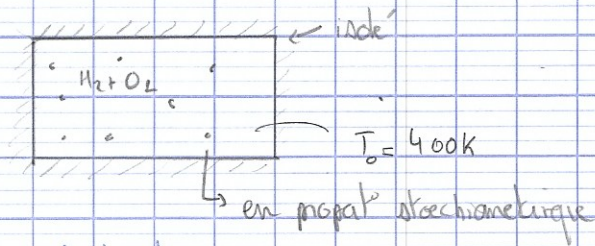 isolé
H2 + O2
T0 = 400K
en propat° stoechiometrique